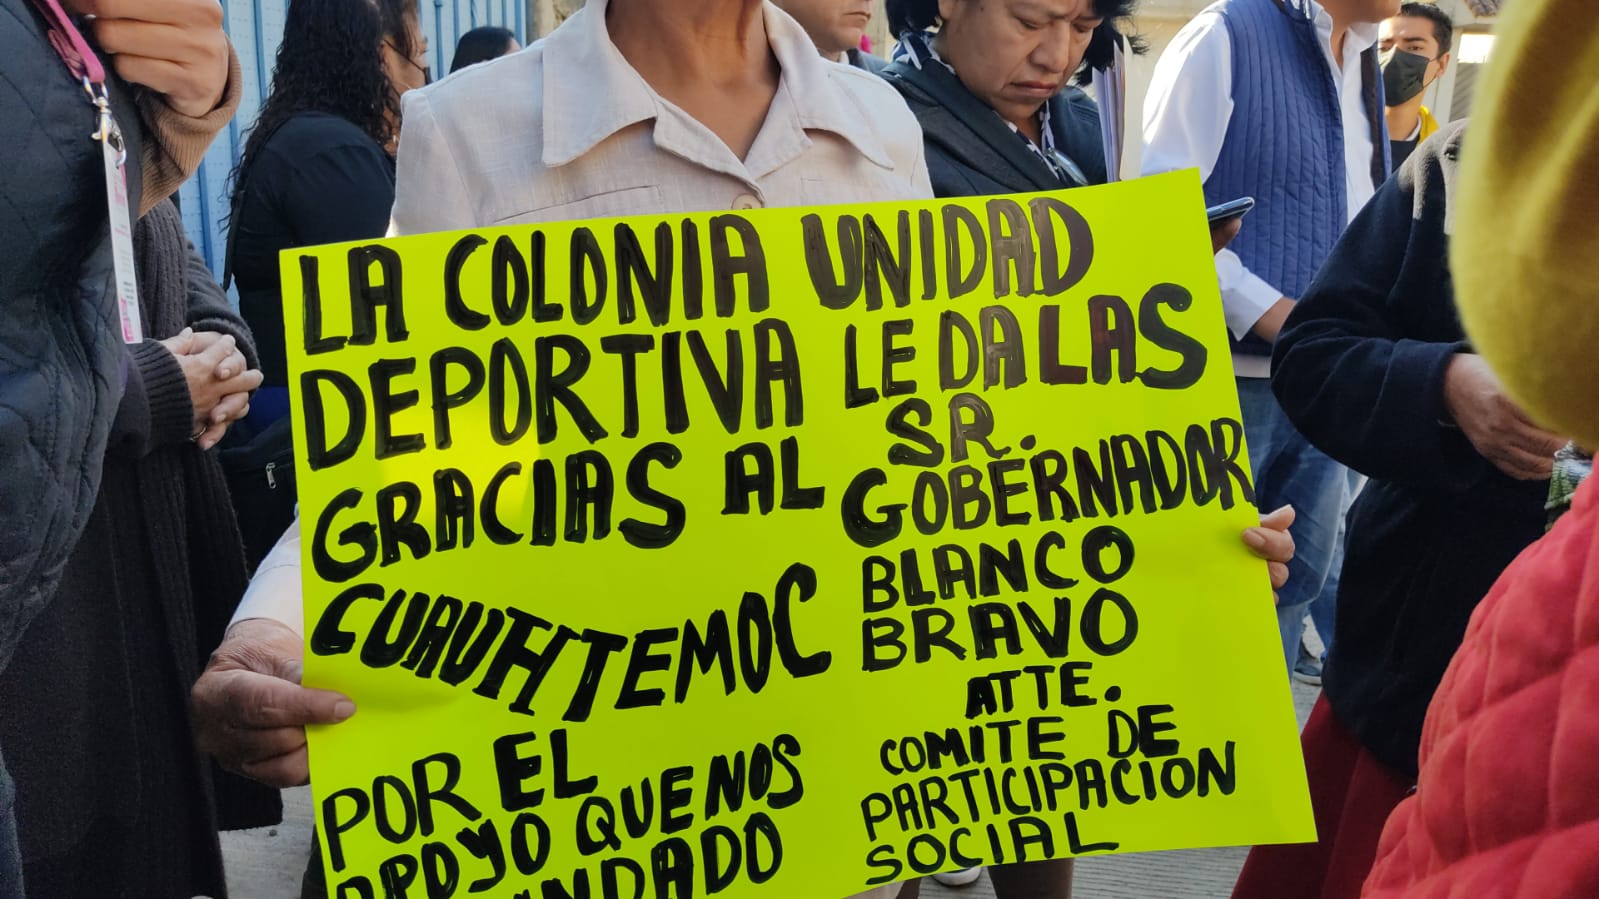 LA COLONIA UNIDAD
DEPORTIVA LE DA LAS
GRACIAS AL SR.
GOBERNADOR
CUAUHTEMOC BLANCO
BRAVO
POR EL
APOYO QUE NOS
ATTE.
COMITE DE
PARTICIPACION
SOCIAL